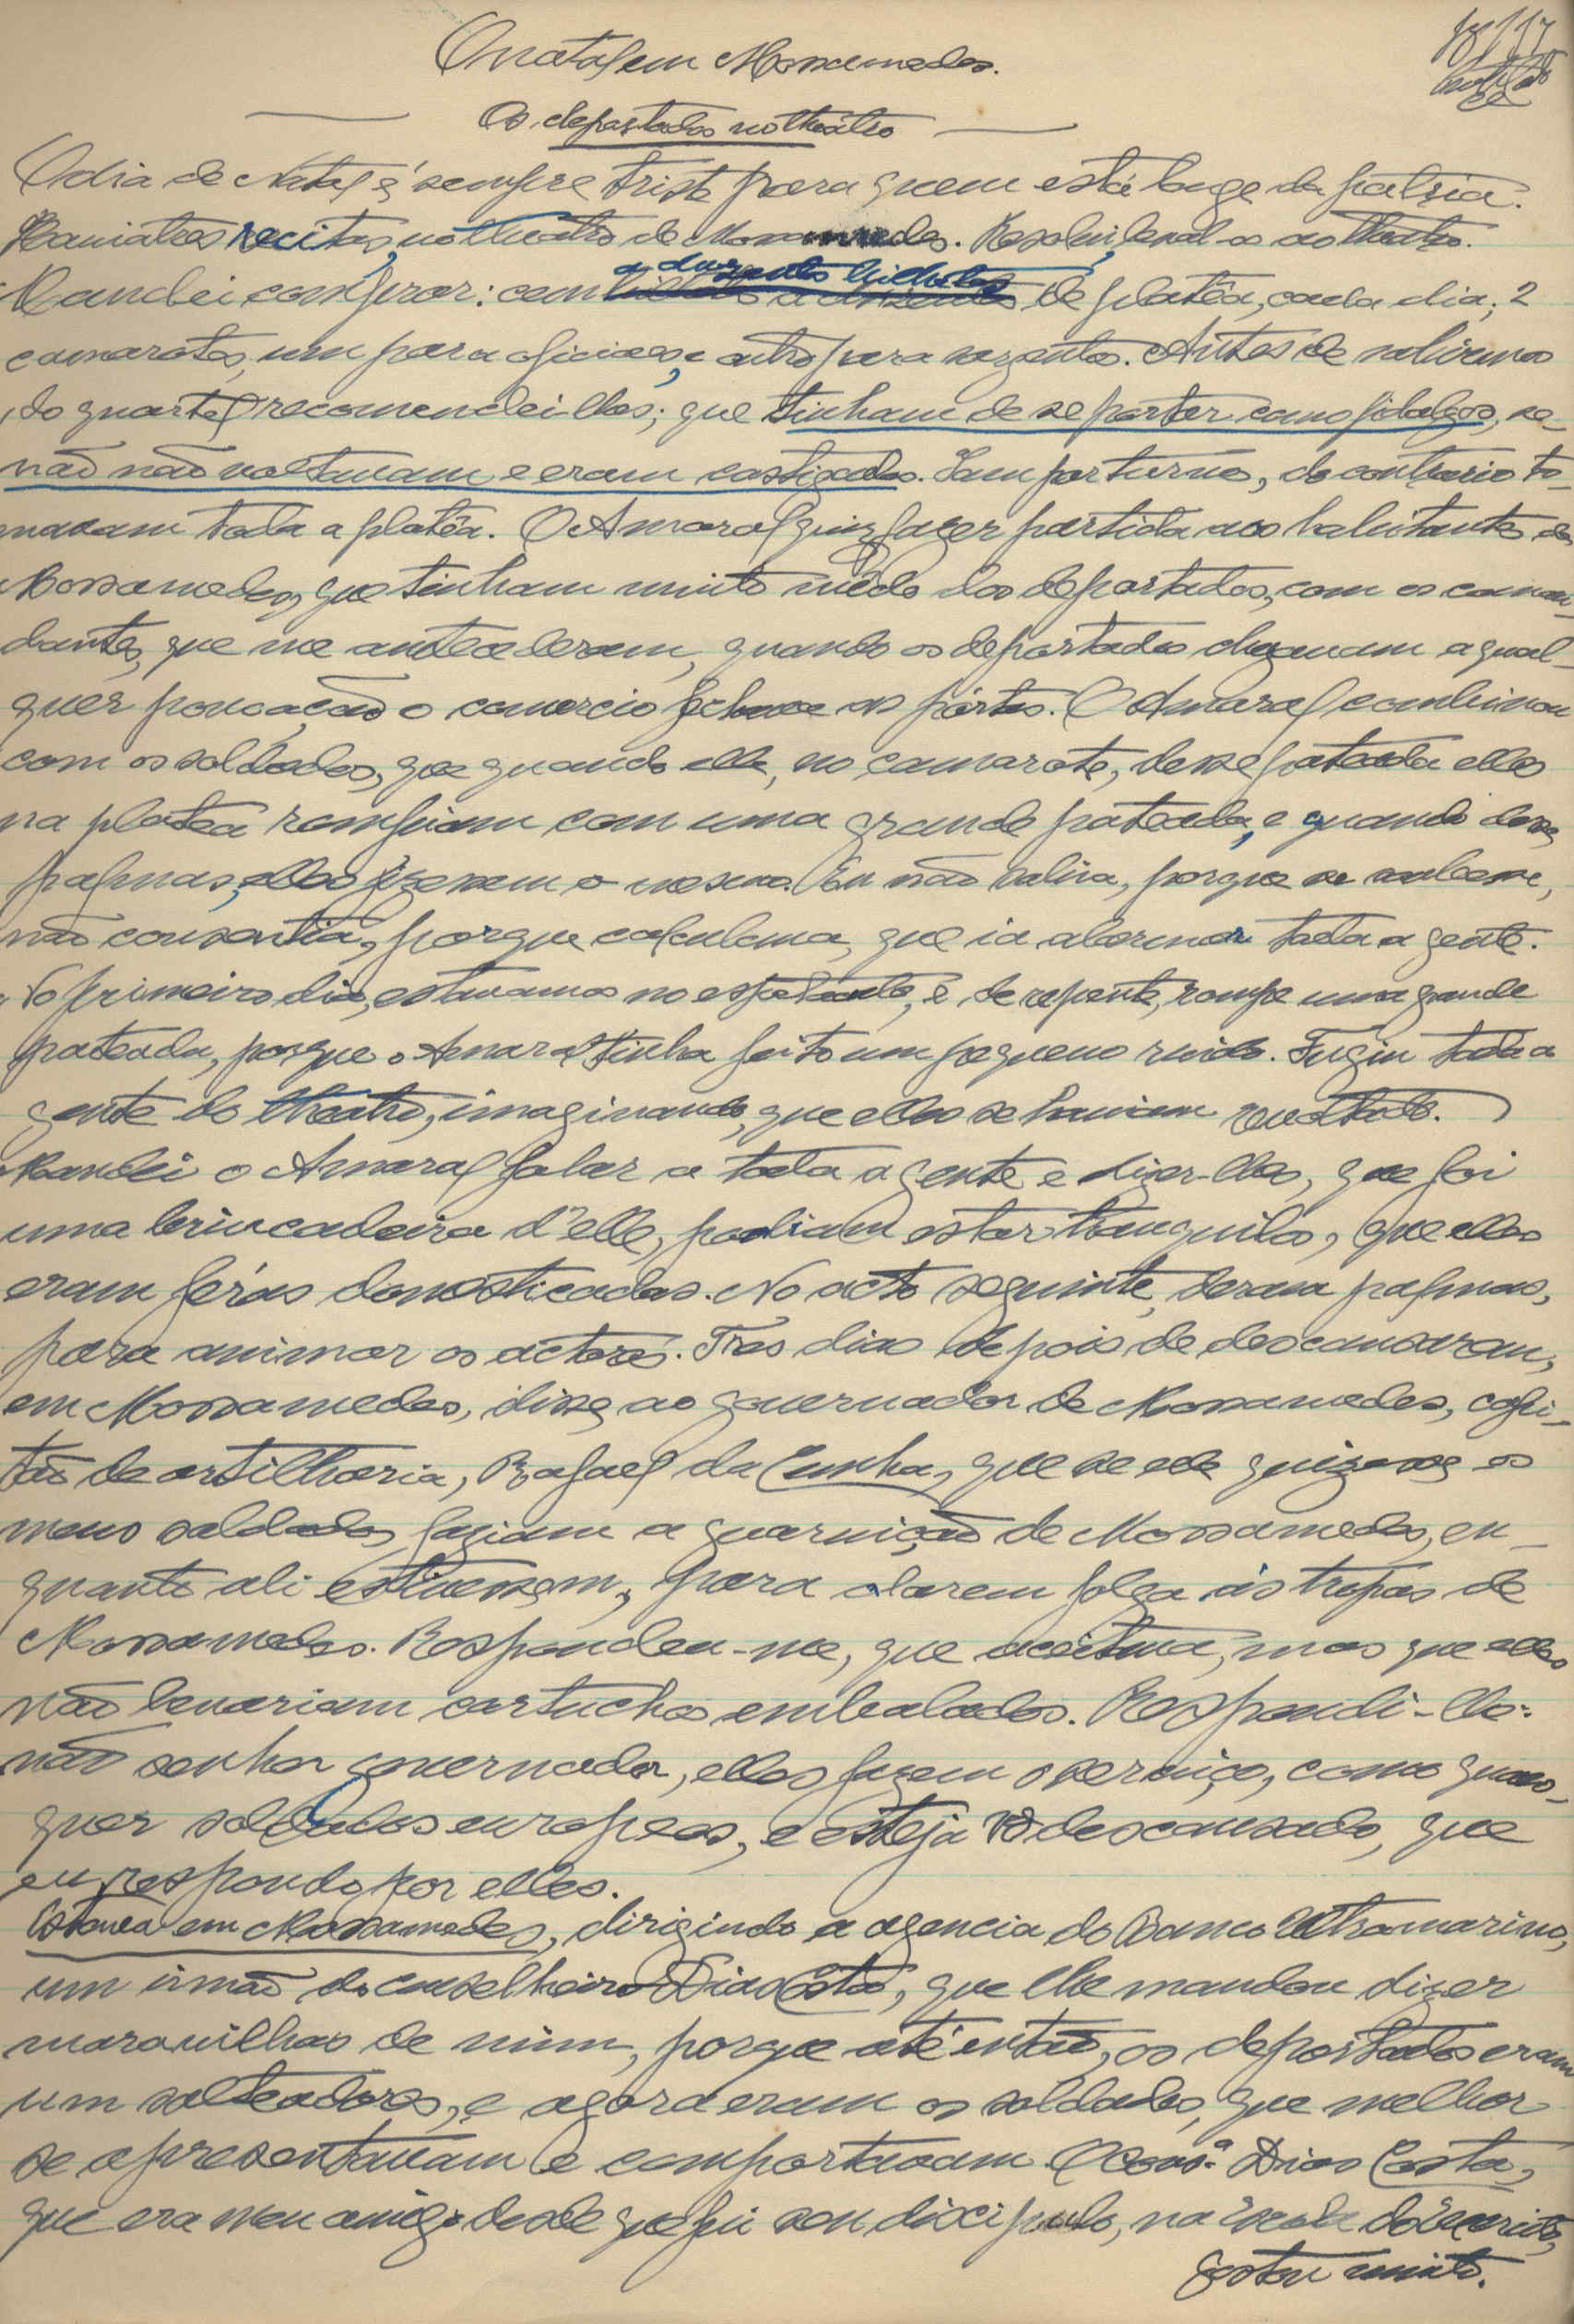 O natal em Mossamedes.
Os deportados no theátro
O dia de Natal é sempre triste para quem está longe da pátria.
Havia tres recitas, no theatro de Mossamedes. Resolvi, leval-os ao theatro.
Mandei comprar: cem a duzentos bilhetes de platêa, cada dia; 2
camarotes, um para oficiaes, e outro para sargentos. Antes de sahirmos
do quartel recomendei-lhes; que tinham de se portar como fidalgos, se-
não não voltavam e eram castigados. Iam por turnos, do contrario to-
mavam toda a platêa. O Amaral quiz fazer partida aos habitantes de
Mossamedes, que tinham muito mêdo dos deportados, com os coman-
dantes, que me antecederam, quando os deportados chegavam a qual-
quer povoação o comercio fechava as pórtas. O Amaral combinou
com os soldados, que quando elle, no camarote, desse pateada elles
na platea rompiam com uma grande pateada, e quando desse
palmas, elles fizessem o mesmo. Eu não sabia, porque se soubesse,
não consentia, porque calculava, que ia alarmar toda a gente.
No primeiro dia, estavamos no espetaculo, e, de repente, rompe uma grande
pateada, porque o Amaral tinha feito um pequeno ruido. Fugiu toda a
gente do theatro, imaginando, que elles se haviam revoltado.
Mandei o Amaral falar a toda a gente e dizer-lhes, que foi
uma brincadeira d'elle, podiam estar tranquilos, que elles
eram féras domesticadas. No acto seguinte, deram palmas,
para animar os actores. Tres dias depois de descansarem,
em Mossamedes, disse, ao governador de Mossamedes, capi-
tão de artilharia, Rafael da Cunha, que se ele quizesse os
meus soldados faziam a guarnição de Mossamedes, en-
quanto ali estivessem, para darem folga ás tropas de
Mossamedes. Respondeu-me, que aceitava, mas que elles
não levariam cartuchos embalados. Respondi-lhe:
não senhor governador, elles fazem o serviço, como quaes-
quer soldados europeos, e esteja descansado, que
eu respondo por elles.
Estava em Mossamedes, dirigindo a agencia do Banco Ultramarino,
um irmão do conselheiro Dias Costa, que lhe mandou dizer
maravilhas de mim, porque até então, os deportados eram
um salteadores, e agora eram os soldados, que melhor
se apresentavam e comportavam. O Cons.º Dias Costa,
que era meu amigo desde que fui seu discipulo, na Escola do Exercito,
gostou muito.